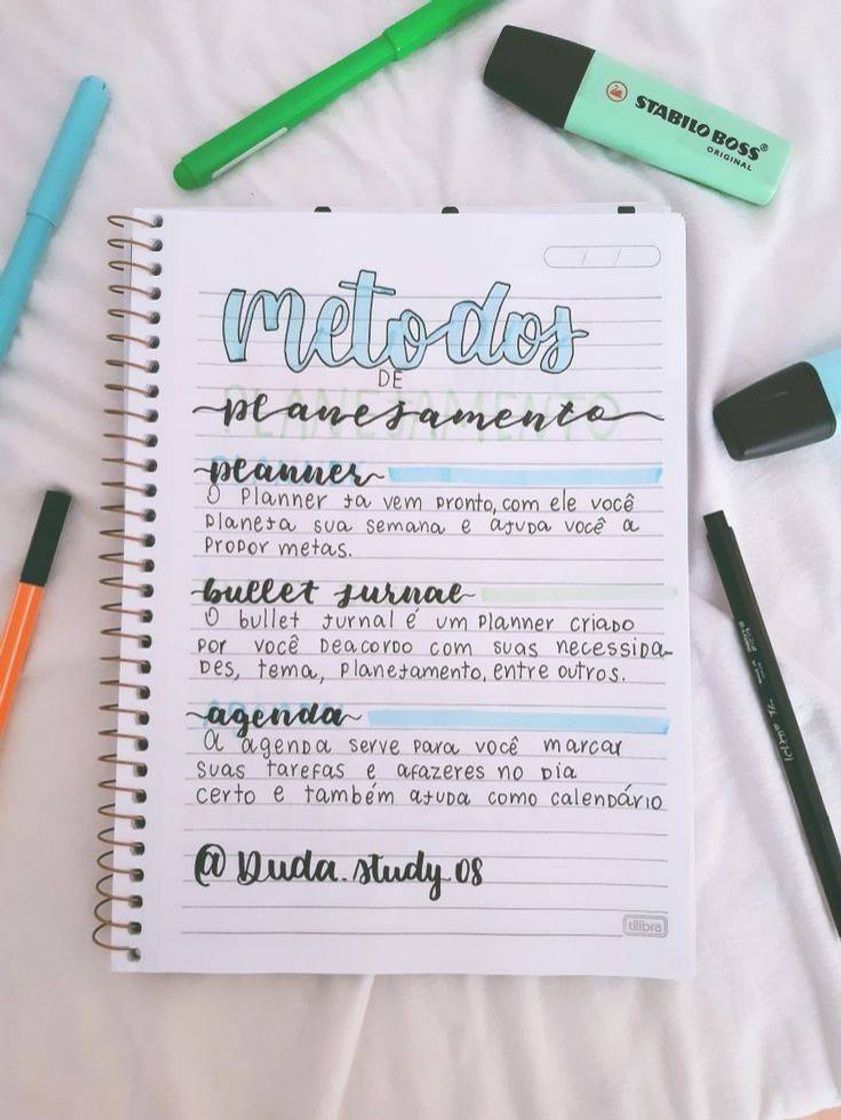 STABILO BOSS®
ORIGINAL
/ /
metodos
DE
PLANEJAMENTO
planejamento
planner
O planner ja vem pronto, com ele você
planeja sua semana e ajuda você a
propor metas.
bullet jurnal
O bullet jurnal é um planner criado
por você deacordo com suas necessida-
des, tema, planejamento, entre outros.
agenda
a agenda serve para você marcar
suas tarefas e afazeres no dia
certo e também ajuda como calendário
@Duda.study_08
tilibra